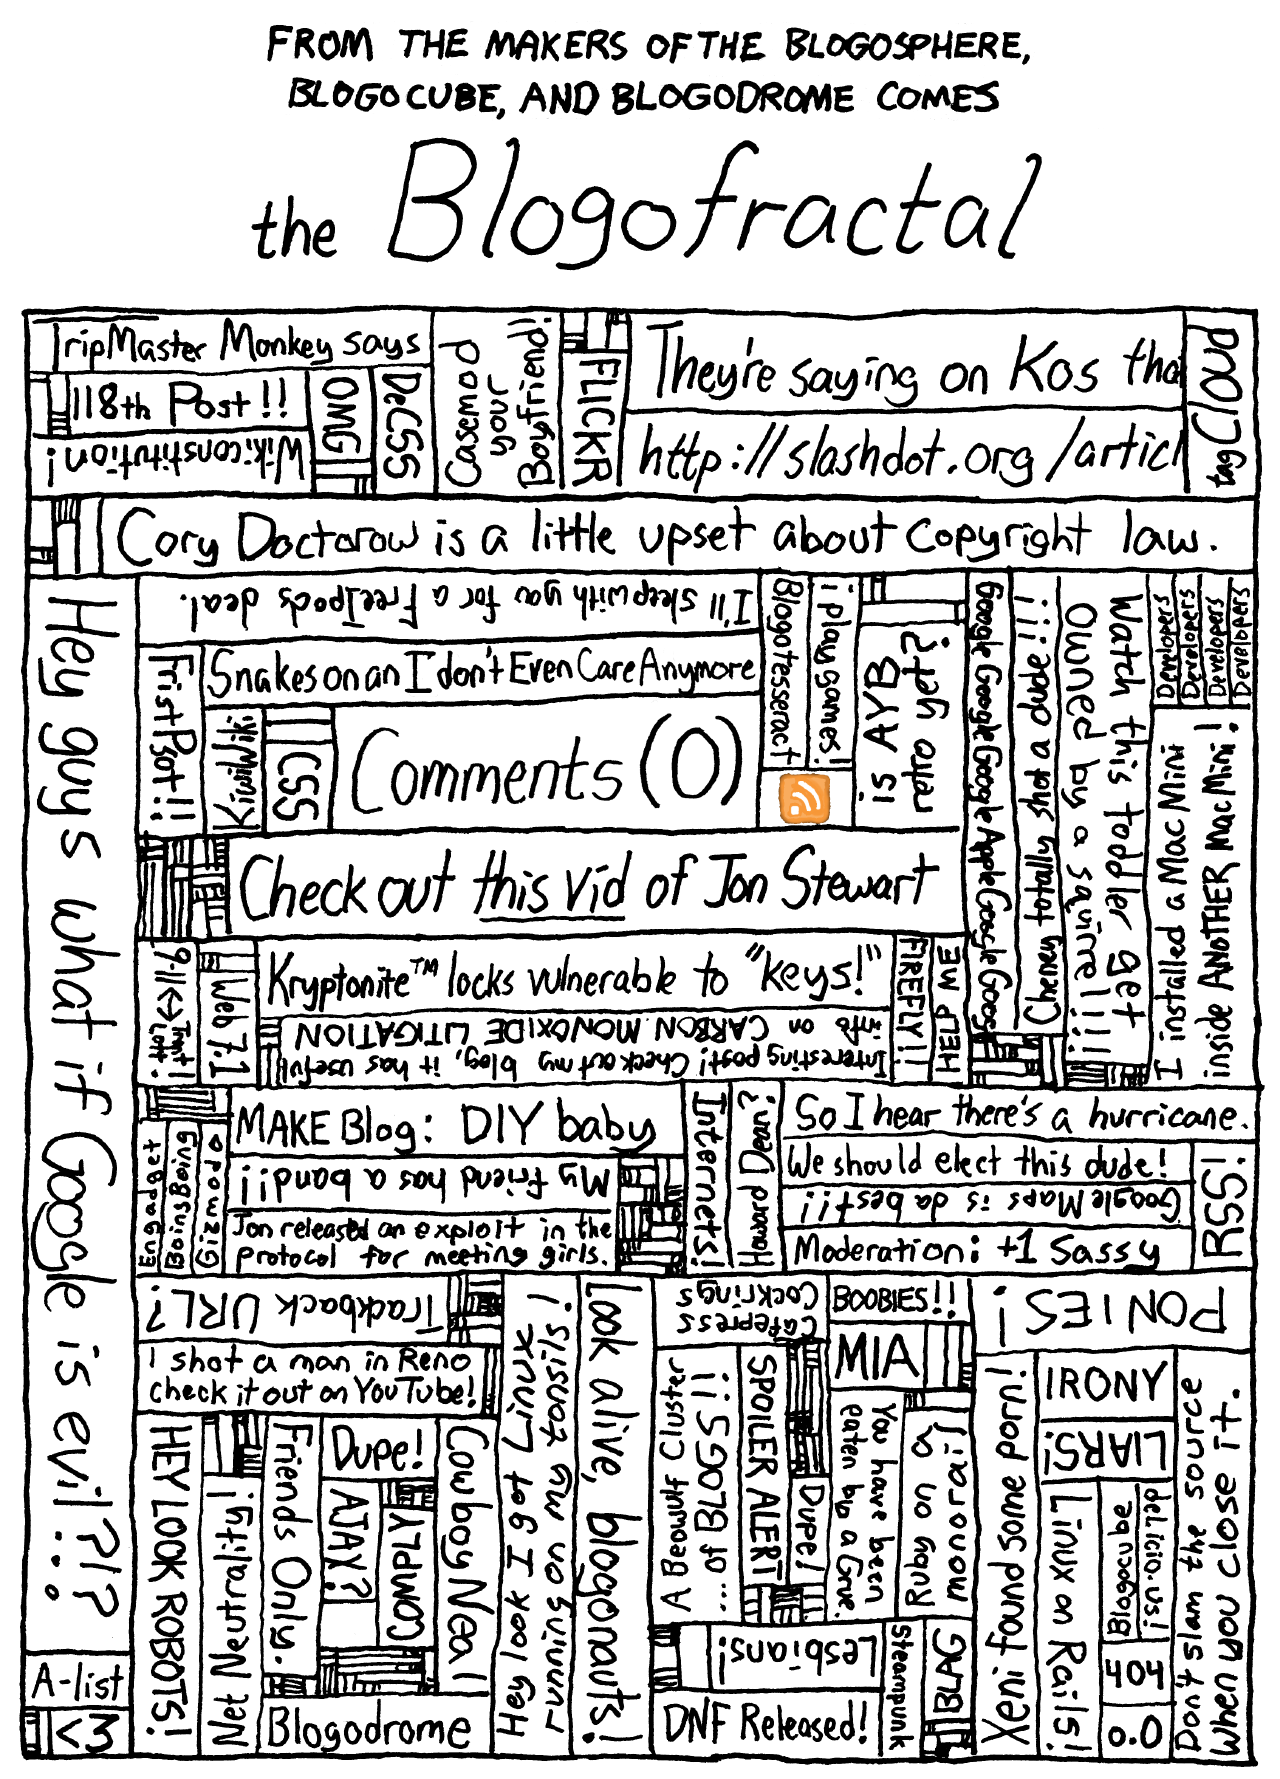 FROM THE MAKERS OF THE BLOGOSPHERE,
BLOGOCUBE, AND BLOGODROME COMES
the Blogofractal
TripMaster Monkey says
118th Post!!
Wikiconstitution!
OMG
DeCSS
Casemod
your
Boyfriend!
FLICKR
They're saying on Kos tha
http://slashdot.org/articl
tagCloud
Cory Doctorow is a little upset about copyright law.
Hey guys what if Google is evil?!?...
I'll sleep with you for a FreeIpods deal.
FristPsot!!
Snakes on an I don't Even Care Anymore
KiwiWiki
CSS
Comments (0)
Blogotesseract
i play games!
is AYB
retro yet?
Google Google Google Google Apple Google Goog
Cheney totally shot a dude!!!
Watch this toddler get
owned by a squirrel!!!
Developers
Developers
Developers
Developers
I installed a Mac Mini
inside ANOTHER Mac Mini!
Check out this vid of Jon Stewart
9-11<->Trent
Lott!
Web 7.1
Kryptonite™ locks vulnerable to "keys!"
Interesting post! Check out my blog, it has useful
info on CARBON MONOXIDE LITIGATION
FIREFLY!!
HELP ME
Engadget
BoingBoing
Gizmodo
MAKE Blog: DIY baby
My friend has a band!!
Jon released an exploit in the
protocol for meeting girls.
Internets!
Howard Dean?
So I hear there's a hurricane.
We should elect this dude!
Google Maps is da best!!!
Moderation: +1 Sassy
RSS!
Trackback URL?
I shot a man in Reno
check it out on YouTube!
HEY LOOK ROBOTS!
Net Neutrality!
Friends Only.
Dupe!
AJAX?
COMPLY
Cowboy Neal
Blogodrome
Hey look I got Linux
running on my tonsils!
Look alive, blogonauts!
Cafepress
Cockrings
BOOBIES!!
MIA
A Beowulf Cluster
of... of BLOGS!!
SPOILER ALERT
Dupe!
You have been
eaten by a Grue.
Ruby on a
monorail!
Lesbians!
DNF Released!
Steampunk
BLAG
PONIES!
Xeni found some porn!
IRONY
LIARS!
Linux on Rails!
Blogocube
del.icio.us!
404
o.O
Don't slam the source
when you close it.
A-list
<3